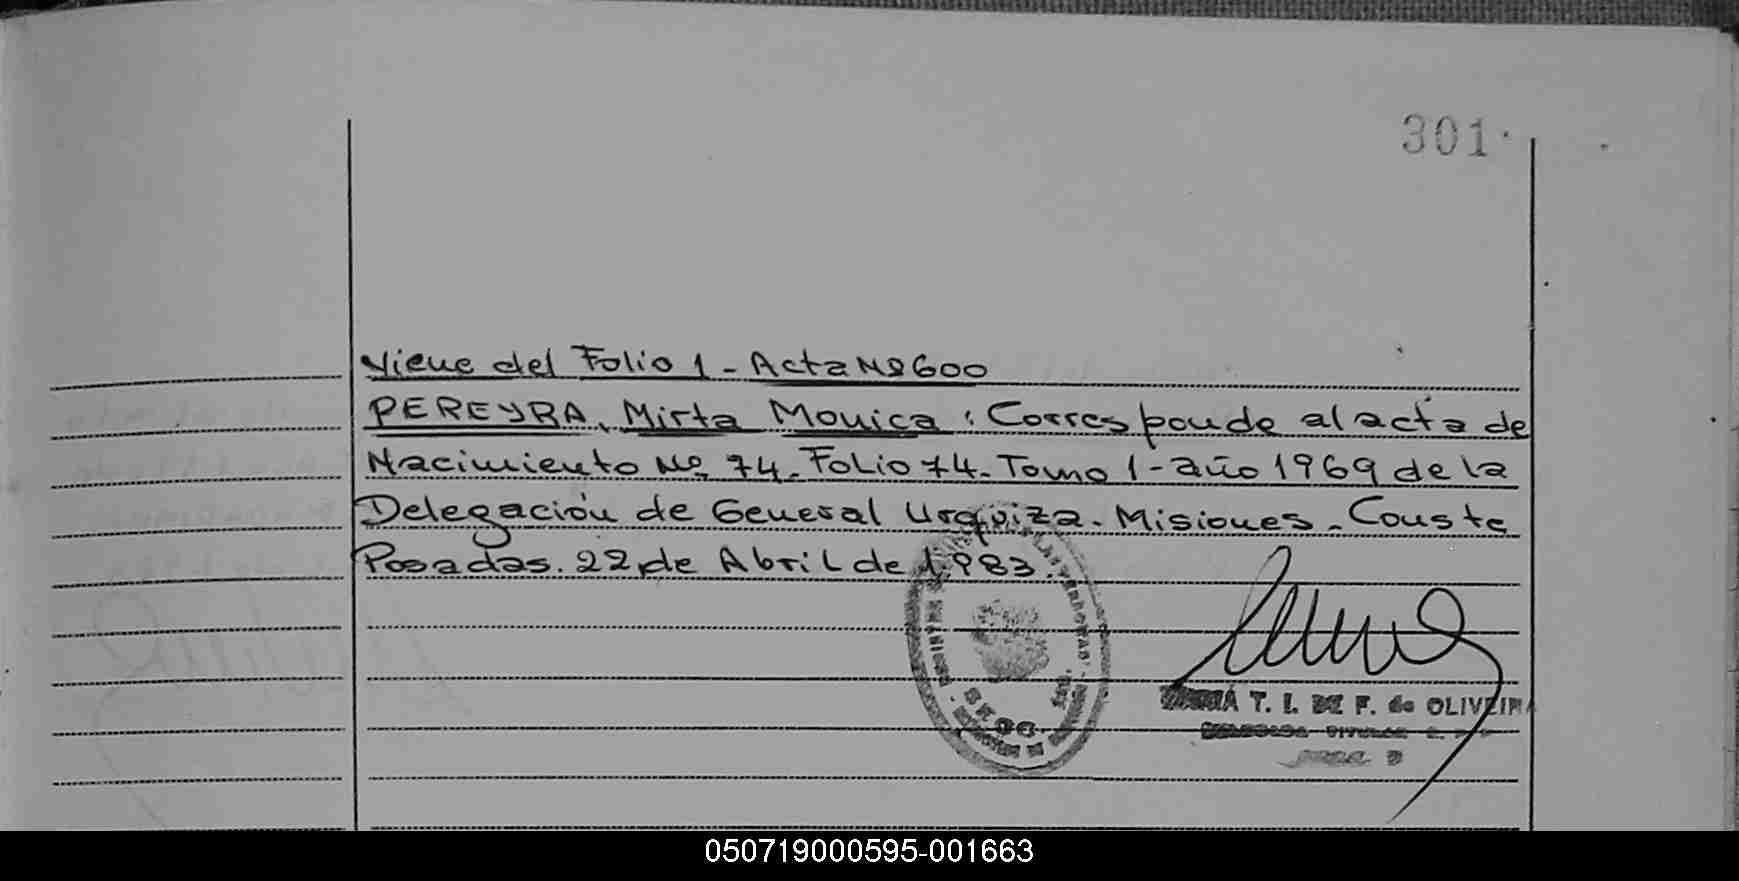 301
Viene del Folio 1 - Acta Nº 600
PEREYRA, Mirta Monica: Corresponde al acta de
Nacimiento Nº 74. Folio 74. Tomo 1 - año 1969 de la
Delegación de General Urquiza. Misiones. Conste
Posadas. 22 de Abril de 1983.
T. I. DE F. de OLIVEIRA
050719000595-001663